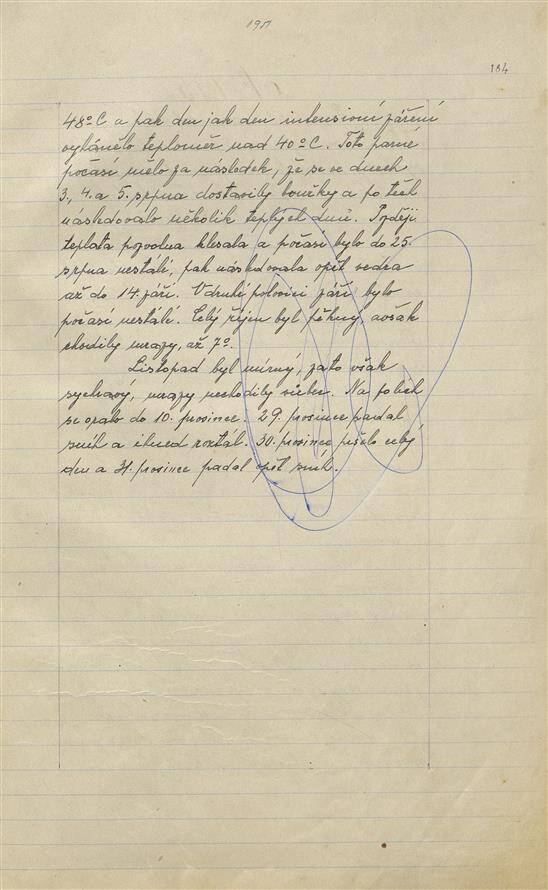 184
48°C. a pak den jak den intensivní záření
vyhánělo teploměr nad 40°C. Toto parné
počasí mělo za následek, že se ve dnech
3., 4. a 5. srpna dostavily bouřky a po těch
následovalo několik teplých dnů. Později
teplota pozvolna klesala a počasí bylo do 25.
srpna nestálé, pak následovala opět vedra
až do 14. září. V druhé polovici září bylo
počasí nestálé. Celý říjen byl pěkný, avšak
chodily mrazy, až 7°.
Listopad byl mírný, zato však
sychravý, mrazy neškodily ničemu. Na polích
se oralo do 10. prosince. 29. prosince padal
sníh a ihned roztál. 30. prosince pršelo celý
den a 31. prosince padal opět sníh.